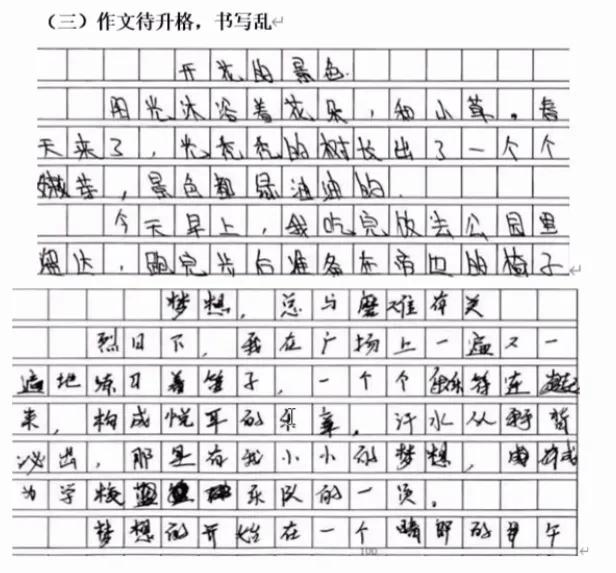 （三）作文待升格，书写乱
开花的景色
阳光沐浴着花朵，和小草。春
天来了，光秃秃的树长出了一个个
嫩芽，景色都绿油油的
今天早上，我吃完饭去公园里
跑完步后准备在旁边的椅子
梦想，总与磨难有关
烈日下，我在广场上一遍又一
遍地练习着笛子，一个个音符连起
来，构成悦耳的乐章，汗水从
泌出，那是有我小小的梦想，成
为学校乐队的一员。
梦想的开始在一个晴朗的早午
100